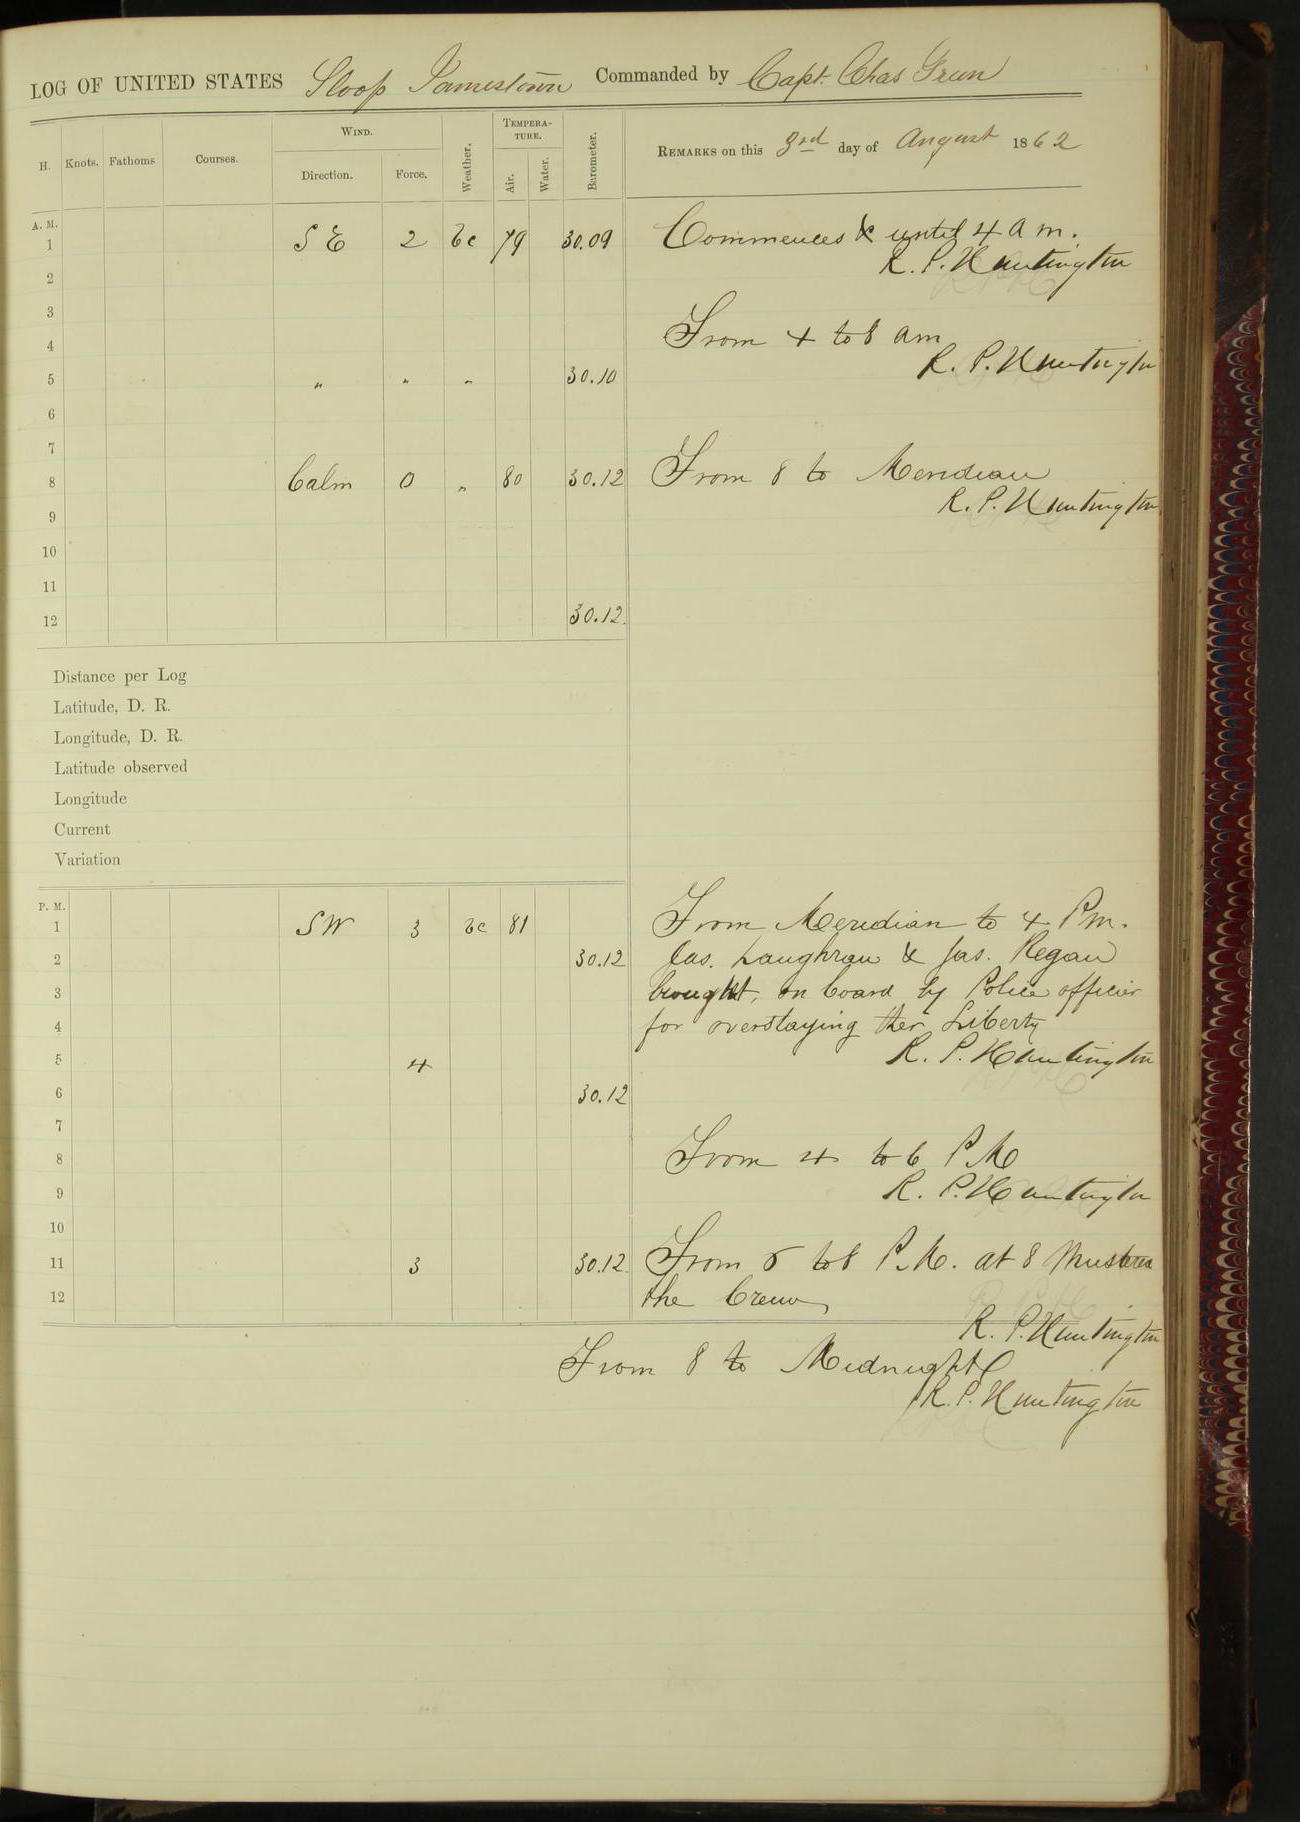 LOG OF UNITED STATES Sloop Jamestown Commanded by Capt. Chas Green
H. Knots. Fathoms Courses. WIND. Direction. Force. Weather. TEMPERATURE. Air. Water. Barometer. REMARKS on this 3rd day of August 1862
A. M.
1 S E 2 bc 79 30.09 Commences & until 4 a m.
R. P. Huntington
2
3
4 From 4 to 8 am
R. P. Huntington
5 " " " 30.10
6
7
8 Calm 0 " 80 30.12 From 8 to Meridian
R. P. Huntington
9
10
11
12 30.12.
Distance per Log
Latitude, D. R.
Longitude, D. R.
Latitude observed
Longitude
Current
Variation
P. M.
1 SW 3 bc 81 From Meridian to 4 Pm.
2 30.12 Jas. Laughran & Jas. Regan
3 brought, on board by Police officer
4 for overstaying ther Liberty
5 4 R. P. Huntington
6 30.12
7
8 From 4 to 6 P M
9 R. P. Huntington
10
11 3 30.12. From 6 to 8 P. M. at 8 Mustered
12 the Crew
R. P. Huntington
From 8 to Midnight
R. P. Huntington